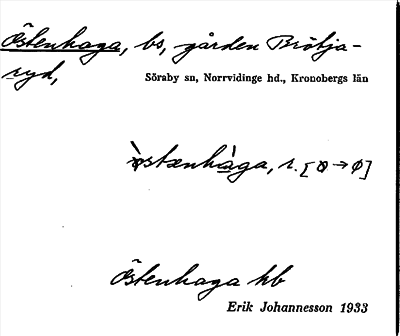 Östenhaga, bs, gården Brötja-
ryd,
Söraby sn, Norrvidinge hd., Kronobergs län
östenhàga, r. [ø → ϕ]
Östenhaga hb
Erik Johannesson 1933